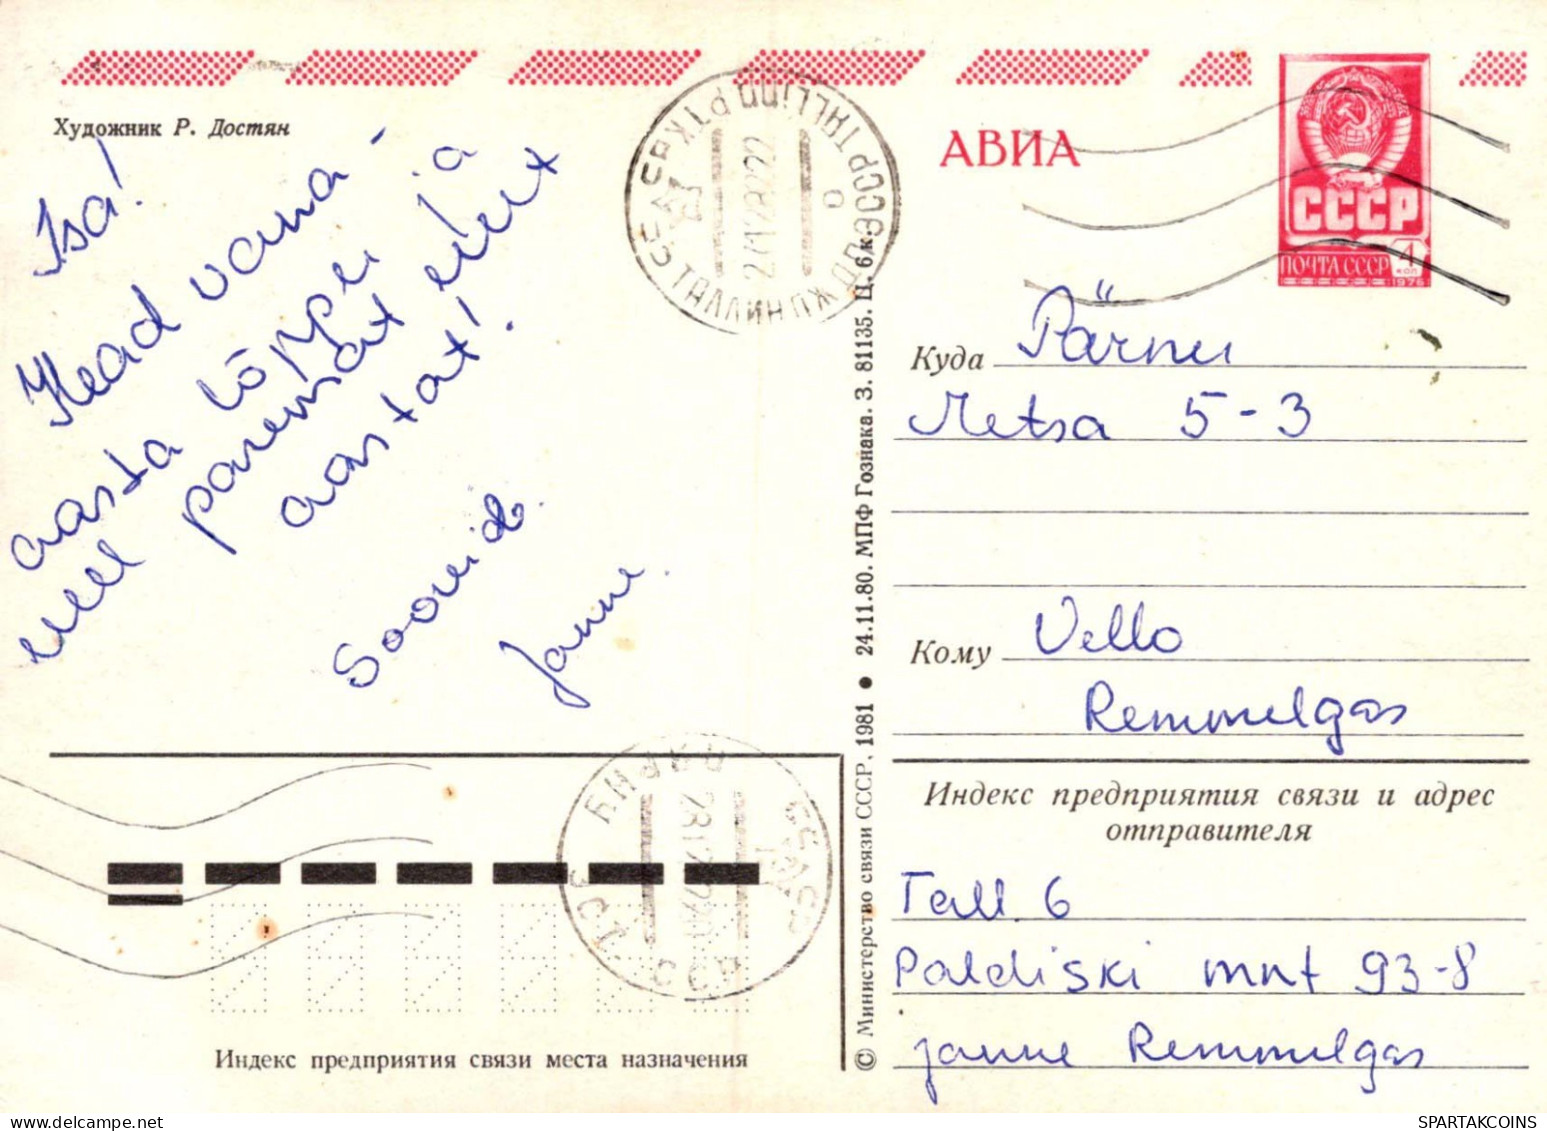 Художник Р. Достян
Isa!
Head vana-
aasta lõppu ja
uut
paremat
aastat!
Soovib
Janne.
АВИА
СССР
ПОЧТА СССР
4
коп
1976
TALLINN
ТАЛЛИНН
Куда Pärnu
Metsa 5-3
Кому Vello
Remmelgas
Индекс предприятия связи и адрес
отправителя
Tall. 6
Paldiski mnt 93-8
Janne Remmelgas
Индекс предприятия связи места назначения
© Министерство связи СССР, 1981 ● 24.11.80. МПФ Гознака. З. 81135. Ц. 6 к.
SPARTAKCOINS
SPARTAKCOINS.COM